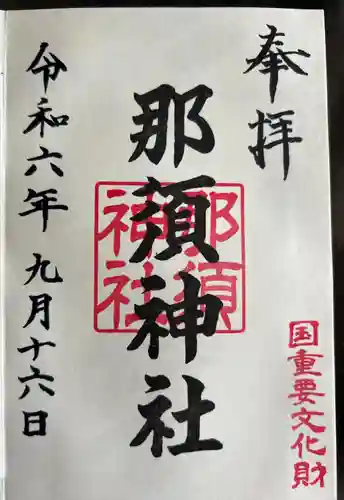 奉拝
国重要文化財
那須神社
那須神社
令和六年九月十六日